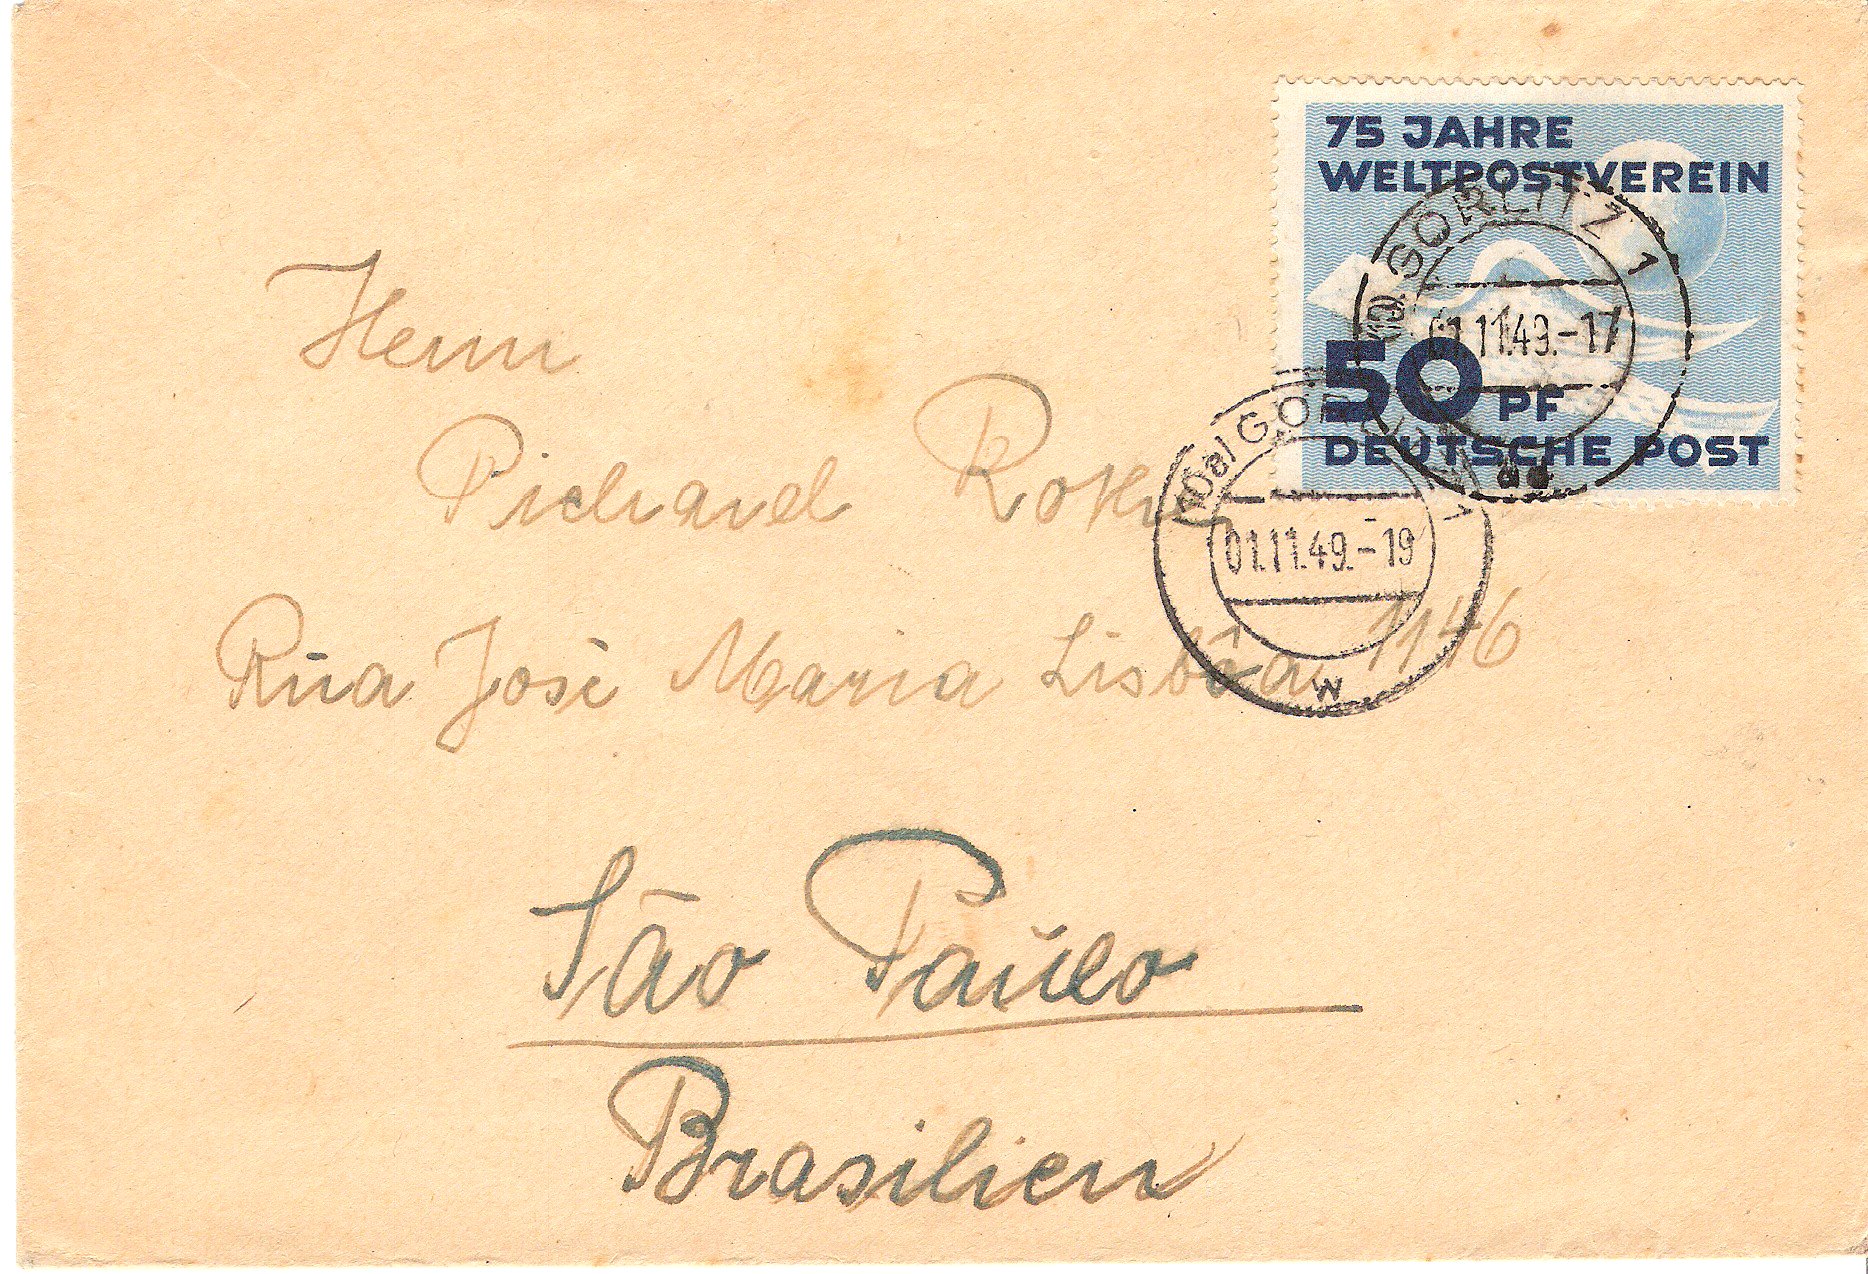 75 JAHRE
WELTPOSTVEREIN
50 PF
DEUTSCHE POST
GÖRLITZ 1
01.11.49.-17
dd
01.11.49.-19
w
Herrn
Richard
Rúa José Maria Lisbôa, 1146
São Paulo
Brasilien